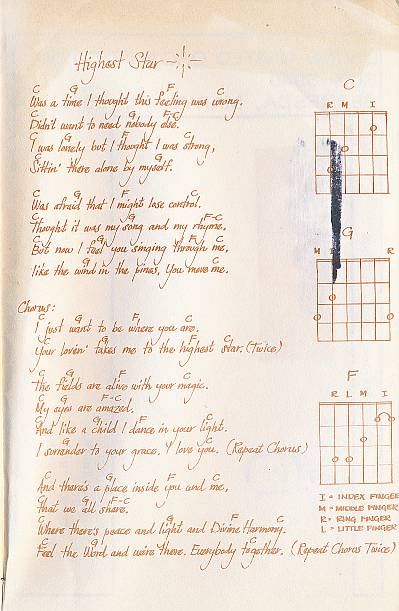 Highest Star
C G F C
Was a time I thought this feeling was wrong.
C G F-C
Didn't want to need nobody else.
C G F C
I was lonely but I thought I was strong,
C G F C
Sittin' there alone by myself.
C G F C
Was afraid that I might lose control.
C G F-C
Thought it was my song and my rhyme,
C G F C
But now I feel you singing through me,
C G F C
like the wind in the pines, you move me.
Chorus:
C G F C
I just want to be where you are.
C G F C
Your lovin' takes me to the highest star. (Twice)
C G F C
The fields are alive with your magic.
C G F-C
My eyes are amazed.
C G F C
And like a child I dance in your light.
G F C
I surrender to your grace. I love you. (Repeat Chorus)
C G F C
And there's a place inside you and me,
C G F-C
that we all share.
C G F C
Where there's peace and light and Divine Harmony.
C G F C
Feel the Word and we're there. Everybody together. (Repeat Chorus Twice)
C
R M I
G
M R
F
R L M I
I = INDEX FINGER
M = MIDDLE FINGER
R = RING FINGER
L = LITTLE FINGER